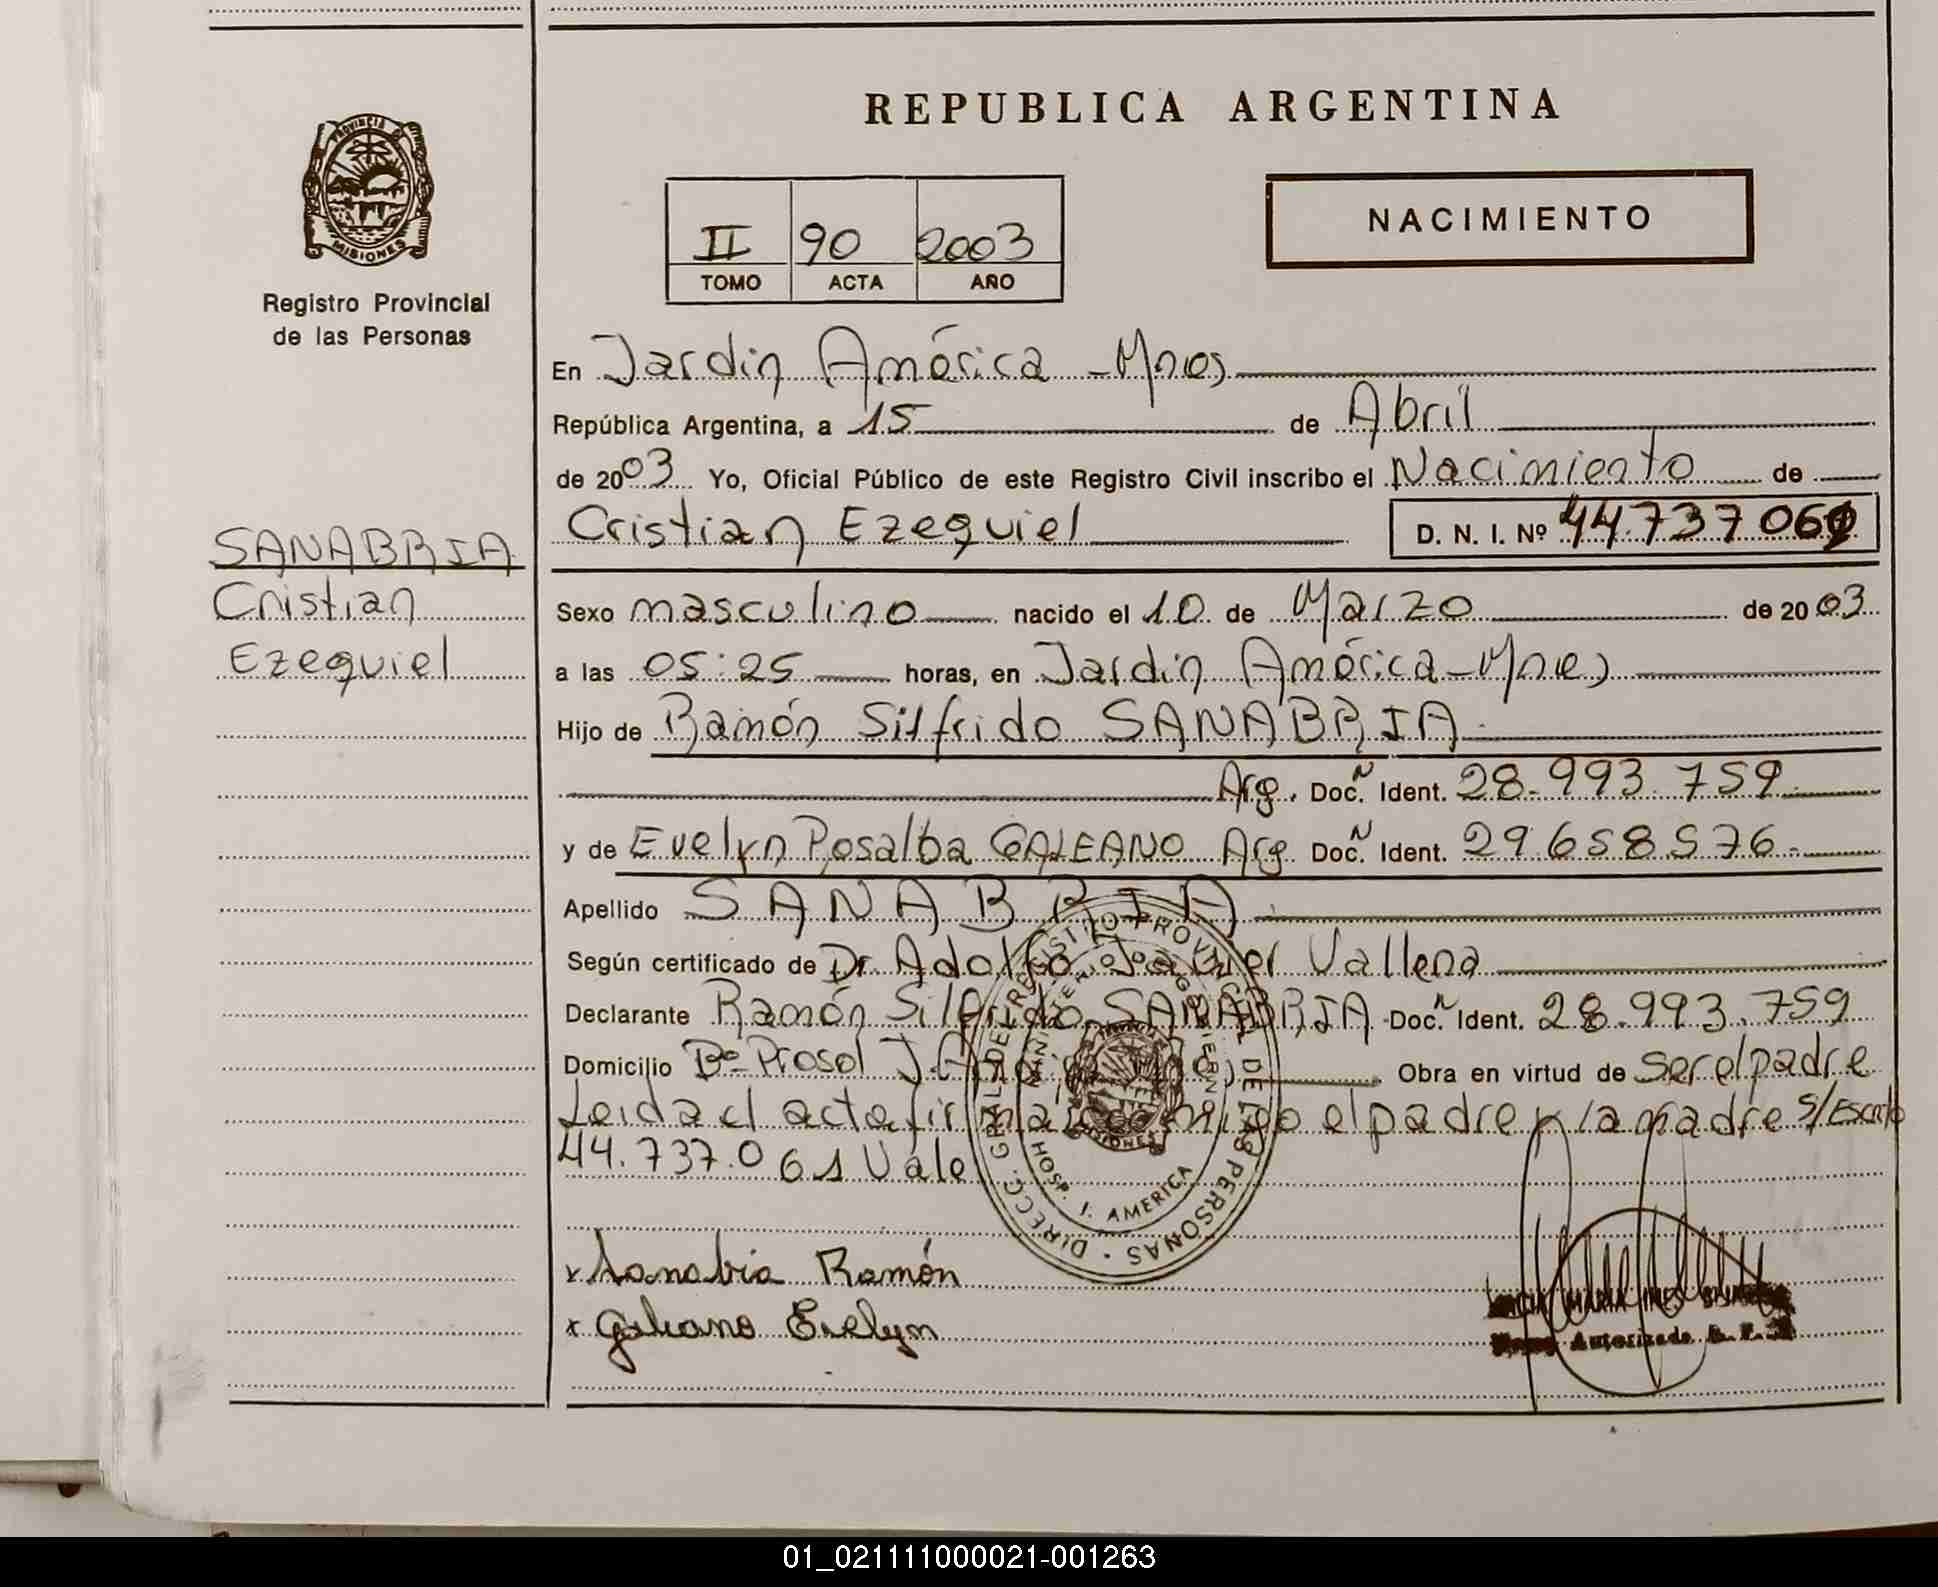 REPUBLICA ARGENTINA
PROVINCIA DE
MISIONES
Registro Provincial
de las Personas
II 90 2003
TOMO ACTA AÑO
NACIMIENTO
En Jardin América - Mnes
República Argentina, a 15 de Abril
de 2003 Yo, Oficial Público de este Registro Civil inscribo el Nacimiento de
Cristian Ezequiel D. N. I. Nº 44.737 061
SANABRIA
Cristian
Ezequiel
Sexo masculino nacido el 10 de Marzo de 2003
a las 05:25 horas, en Jardin América - Mnes
Hijo de Ramón Silfrido SANABRIA
Arg. Doc. Ident. 28.993.759
y de Evelyn Rosalba GALEANO Arg Doc. Ident. 29.658.576
Apellido SANABRIA
Según certificado de Dr. Adolfo Javier Vallena
Declarante Ramón Silfrido SANABRIA Doc. Ident. 28.993.759
Domicilio Bº Prosol J. América Mnes Obra en virtud de ser el padre
Leida el acta firma el padre y la madre S/Escrito
44.737.061 Vale
DIRECC. GRAL DE REGISTRO PROVINCIAL DE LAS PERSONAS
MINISTERIO DE GOBIERNO
MISIONES
HOSP. J. AMERICA
x Sanabria Ramón
x Galeano Evelyn
MARIA INES
Autorizada
01_021111000021-001263